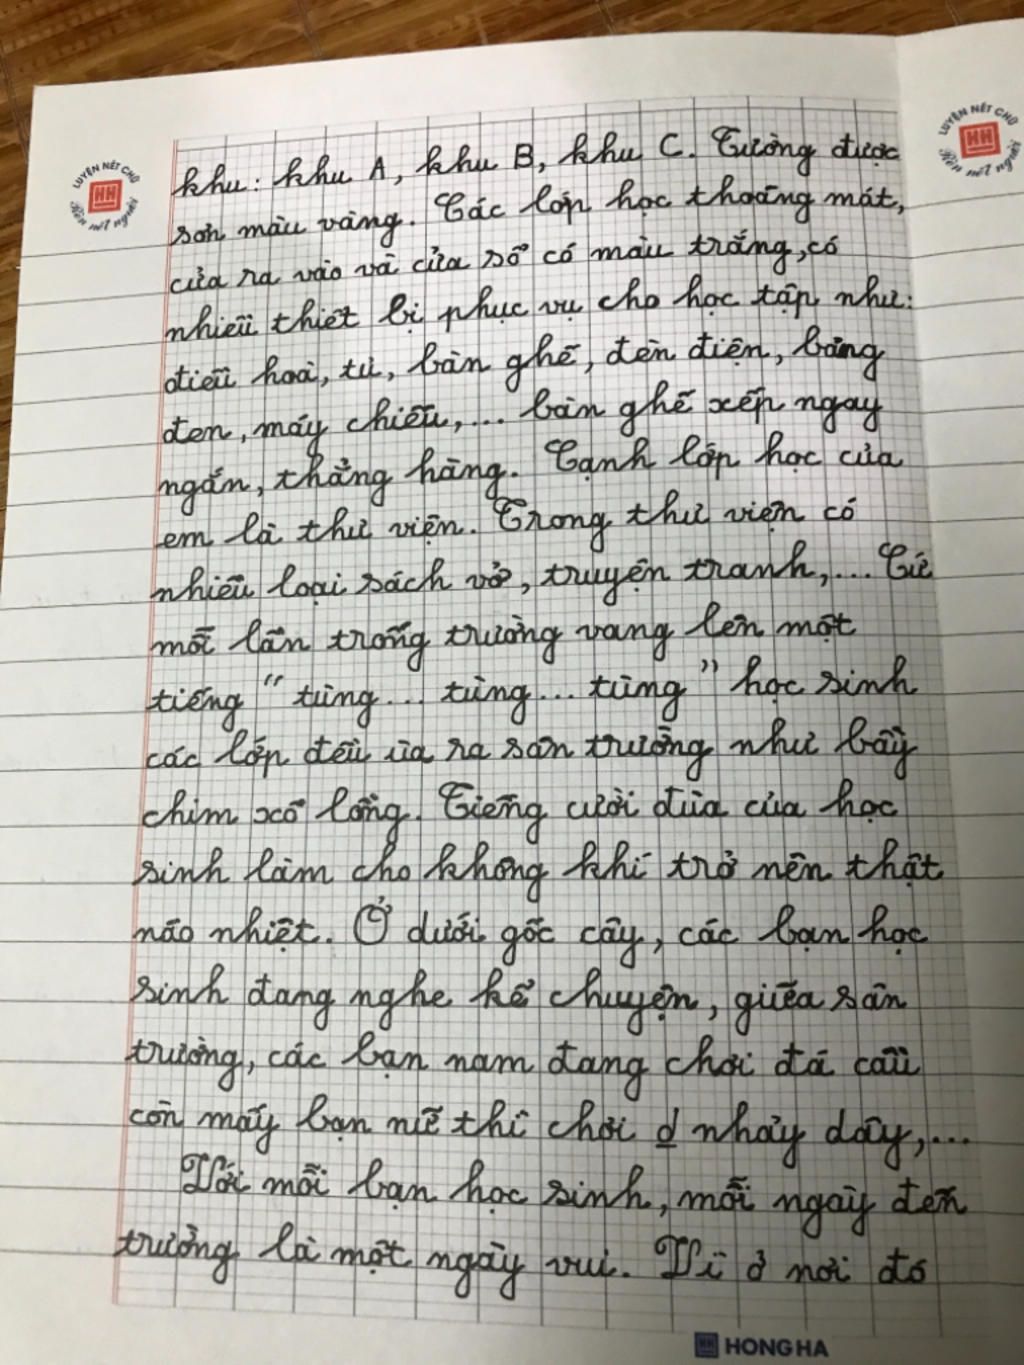 LUYỆN NÉT CHỮ
HH
Rèn nết người
LUYỆN NÉT CHỮ
HH
Rèn nết người
khu: khu A, khu B, khu C. Tường được
sơn màu vàng. Các lớp học thoáng mát,
cửa ra vào và cửa sổ có màu trắng, có
nhiều thiết bị phục vụ cho học tập như:
điều hoà, tủ, bàn ghế, đèn điện, bảng
đen, máy chiếu,... bàn ghế xếp ngay
ngắn, thẳng hàng. Cạnh lớp học của
em là thư viện. Trong thư viện có
nhiều loại sách vở, truyện tranh,... Cứ
mỗi lần trống trường vang lên một
tiếng “tùng... tùng... tùng” học sinh
các lớp đều ùa ra sân trường như bầy
chim xổ lồng. Tiếng cười đùa của học
sinh làm cho không khí trở nên thật
náo nhiệt. Ở dưới gốc cây, các bạn học
sinh đang nghe kể chuyện, giữa sân
trường, các bạn nam đang chơi đá cầu
còn mấy bạn nữ thì chơi d nhảy dây,...
Với mỗi bạn học sinh, mỗi ngày đến
trường là một ngày vui. Vì ở nơi đó
HH HONG HA